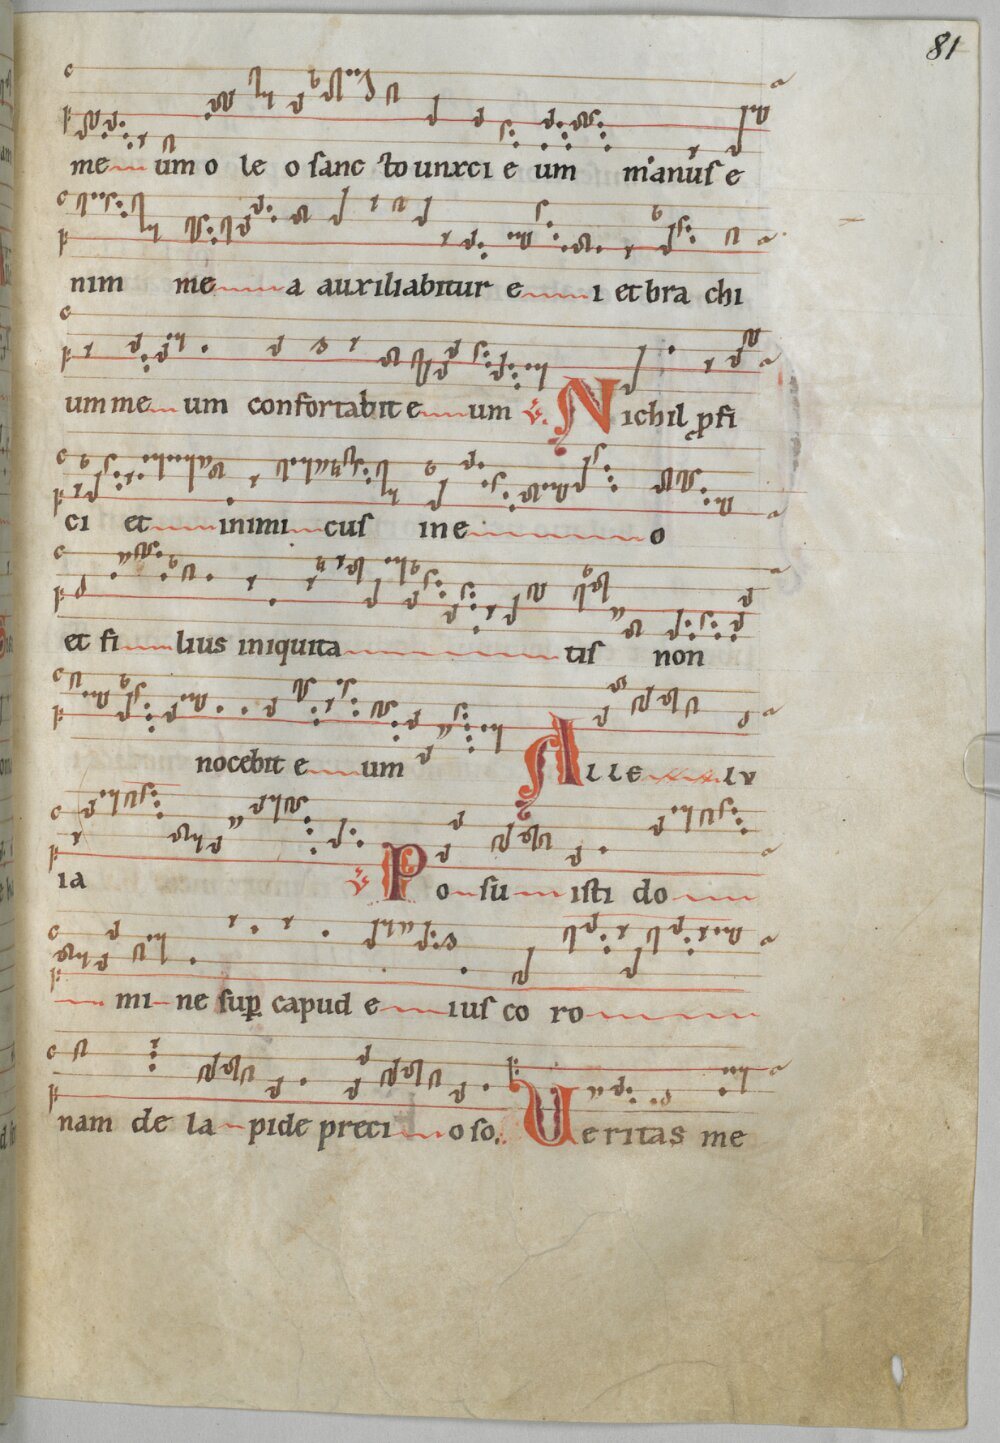 81
me um o le o sanc to unxci e um manus e
nim me a auxiliabitur e i et bra chi
um me um confortabit e um ℣. Nichil ꝓfi
ci et inimi cus in e o
et fi lius iniquita tis non
nocebit e um Alle lu
ia ℣ Po su isti do
mi ne suꝑ capud e ius co ro
nam de la pide preci o so. Ueritas me